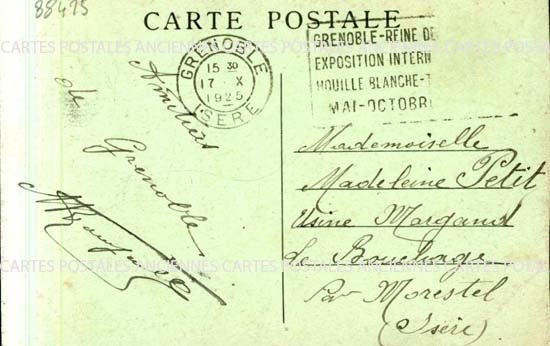 88425
CARTE POSTALE
GRENOBLE
15 30
17 X
1925
ISERE
GRENOBLE-REINE DE
EXPOSITION INTERN
HOUILLE BLANCHE-T
MAI-OCTOBR
Amitiés
de
Grenoble
Mademoiselle
Madeleine Petit
Usine Morgand
Le Bouchage
Par Morestel
(Isère)
CARTES POSTALES ANCIENNES CARTES POSTALES ANCIENNES CARTES POSTALES
CARTES POSTALES ANCIENNES CARTES POSTALES ANCIENNES CARTES POSTALES